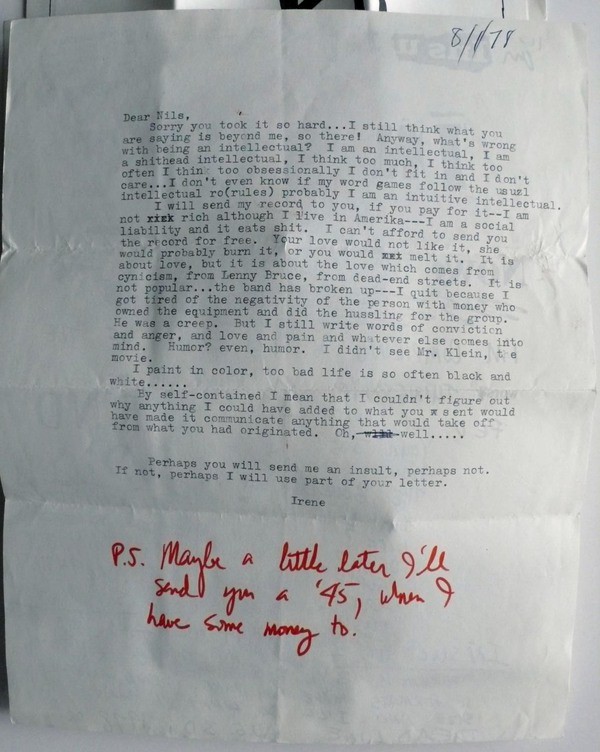 8/1/78
Dear Nils,
Sorry you took it so hard...I still think what you
are saying is beyond me, so there! Anyway, what's wrong
with being an intellectual? I am an intellectual, I am
a shithead intellectual, I think too much, I think too
often I think too obsessionally I don't fit in and I don't
care...I don't even know if my word games follow the usual
intellectual ro(rules) probably I am an intuitive intellectual.
I will send my record to you, if you pay for it--I am
not rich although I live in Amerika---I am a social
liability and it eats shit. I can't afford to send you
the record for free. Your love would not like it, she
would probably burn it, or you would melt it. It is
about love, but it is about the love which comes from
cynicism, from Lenny Bruce, from dead-end streets. It is
not popular...the band has broken up---I quit because I
got tired of the negativity of the person with money who
owned the equipment and did the hussling for the group.
He was a creep. But I still write words of conviction
and anger, and love and pain and whatever else comes into
mind. Humor? even, humor. I didn't see Mr. Klein, t e
movie.
I paint in color, too bad life is so often black and
white......
By self-contained I mean that I couldn't figure out
why anything I could have added to what you x sent would
have made it communicate anything that would take off
from what you had originated. Oh, well.....
Perhaps you will send me an insult, perhaps not.
If not, perhaps I will use part of your letter.
Irene
P.S. Maybe a little later I'll
send you a '45, when I
have some money to!